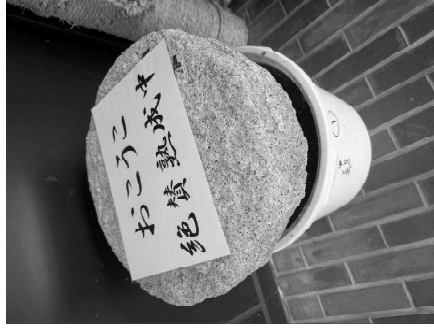 おこうこ
絶賛熟成中